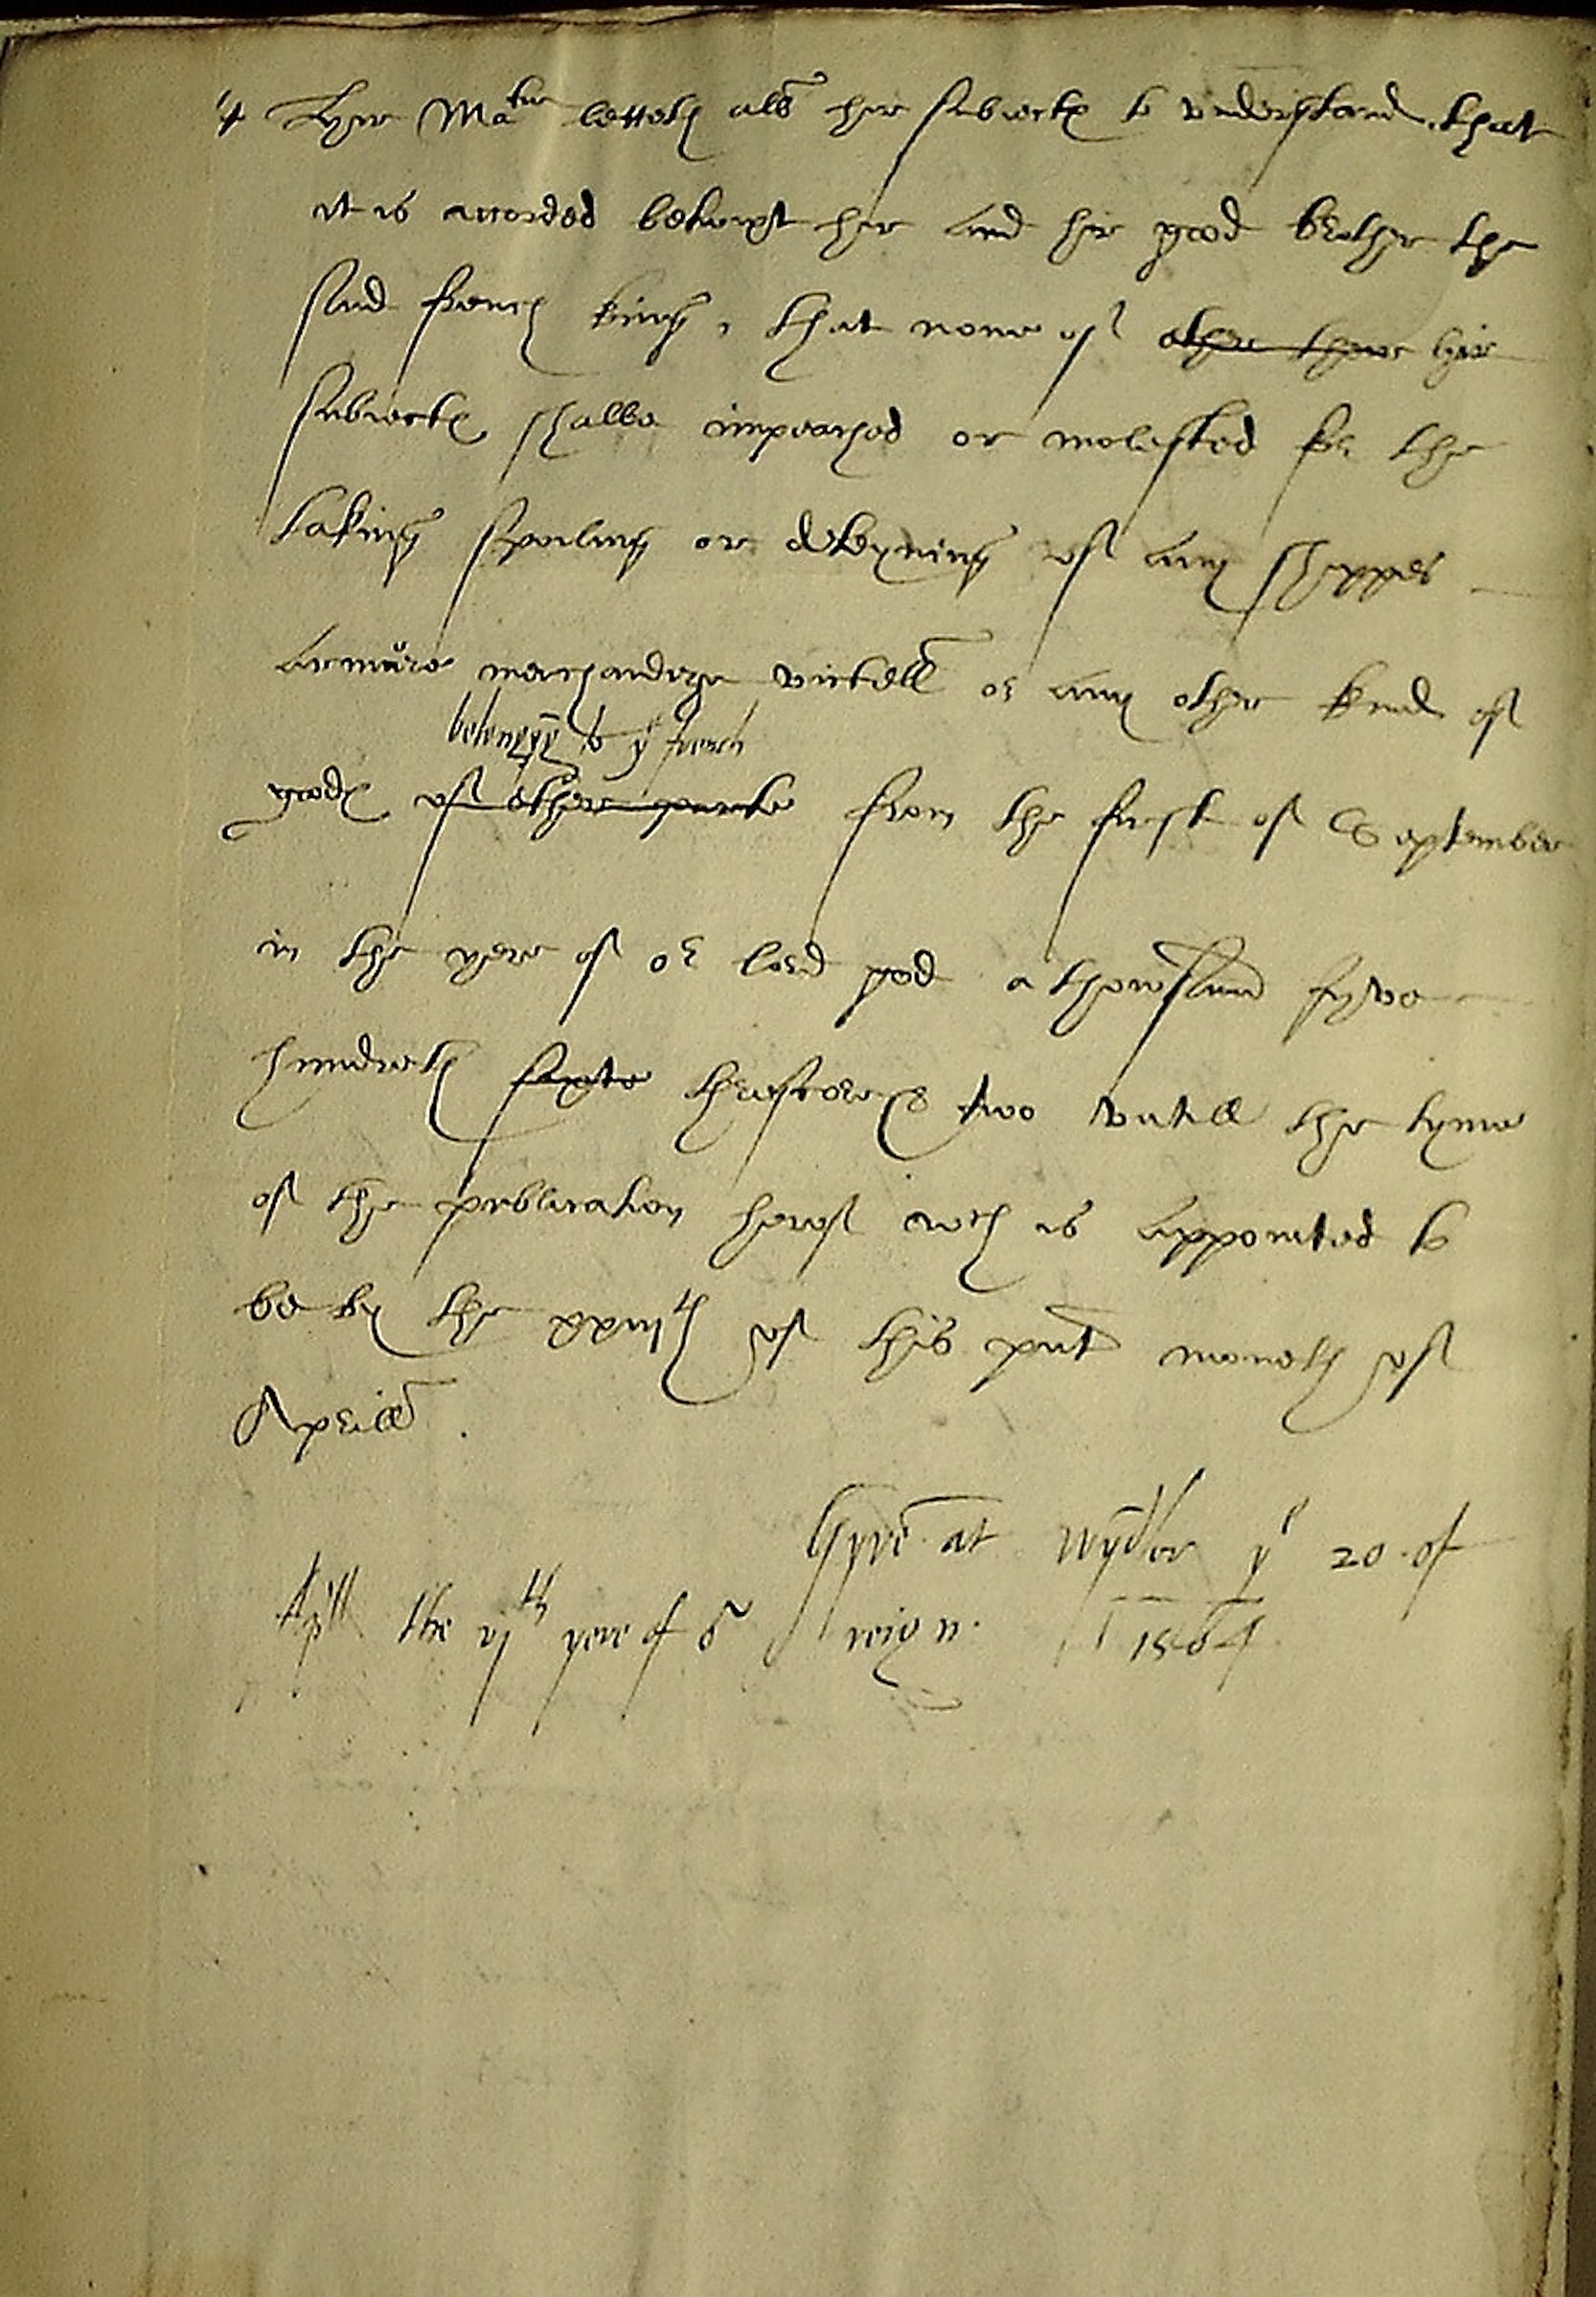 4 Hyr Ma tie letteth also her subiectes to vnderstand that
it is accorded betwixt her and hir good brother the
said french king, that none of other there hir
subiectes shalbe impeached or molested for the
taking spoiling or deteyning of any shippes
armure merchandize victell or any other kind of
belongyng to ye french
goodes of other parte from the first of September
in the yere of or lord god a thowsand fyve
hundreth sixte threscore & two vntill the tyme
of the publication herof wch is appointed to
be by the xxiijth of this pnt moneth of
Aprill .
Gyve at Wydsor ye 20 of
Ap'll the vjth yere of or reign. 1564